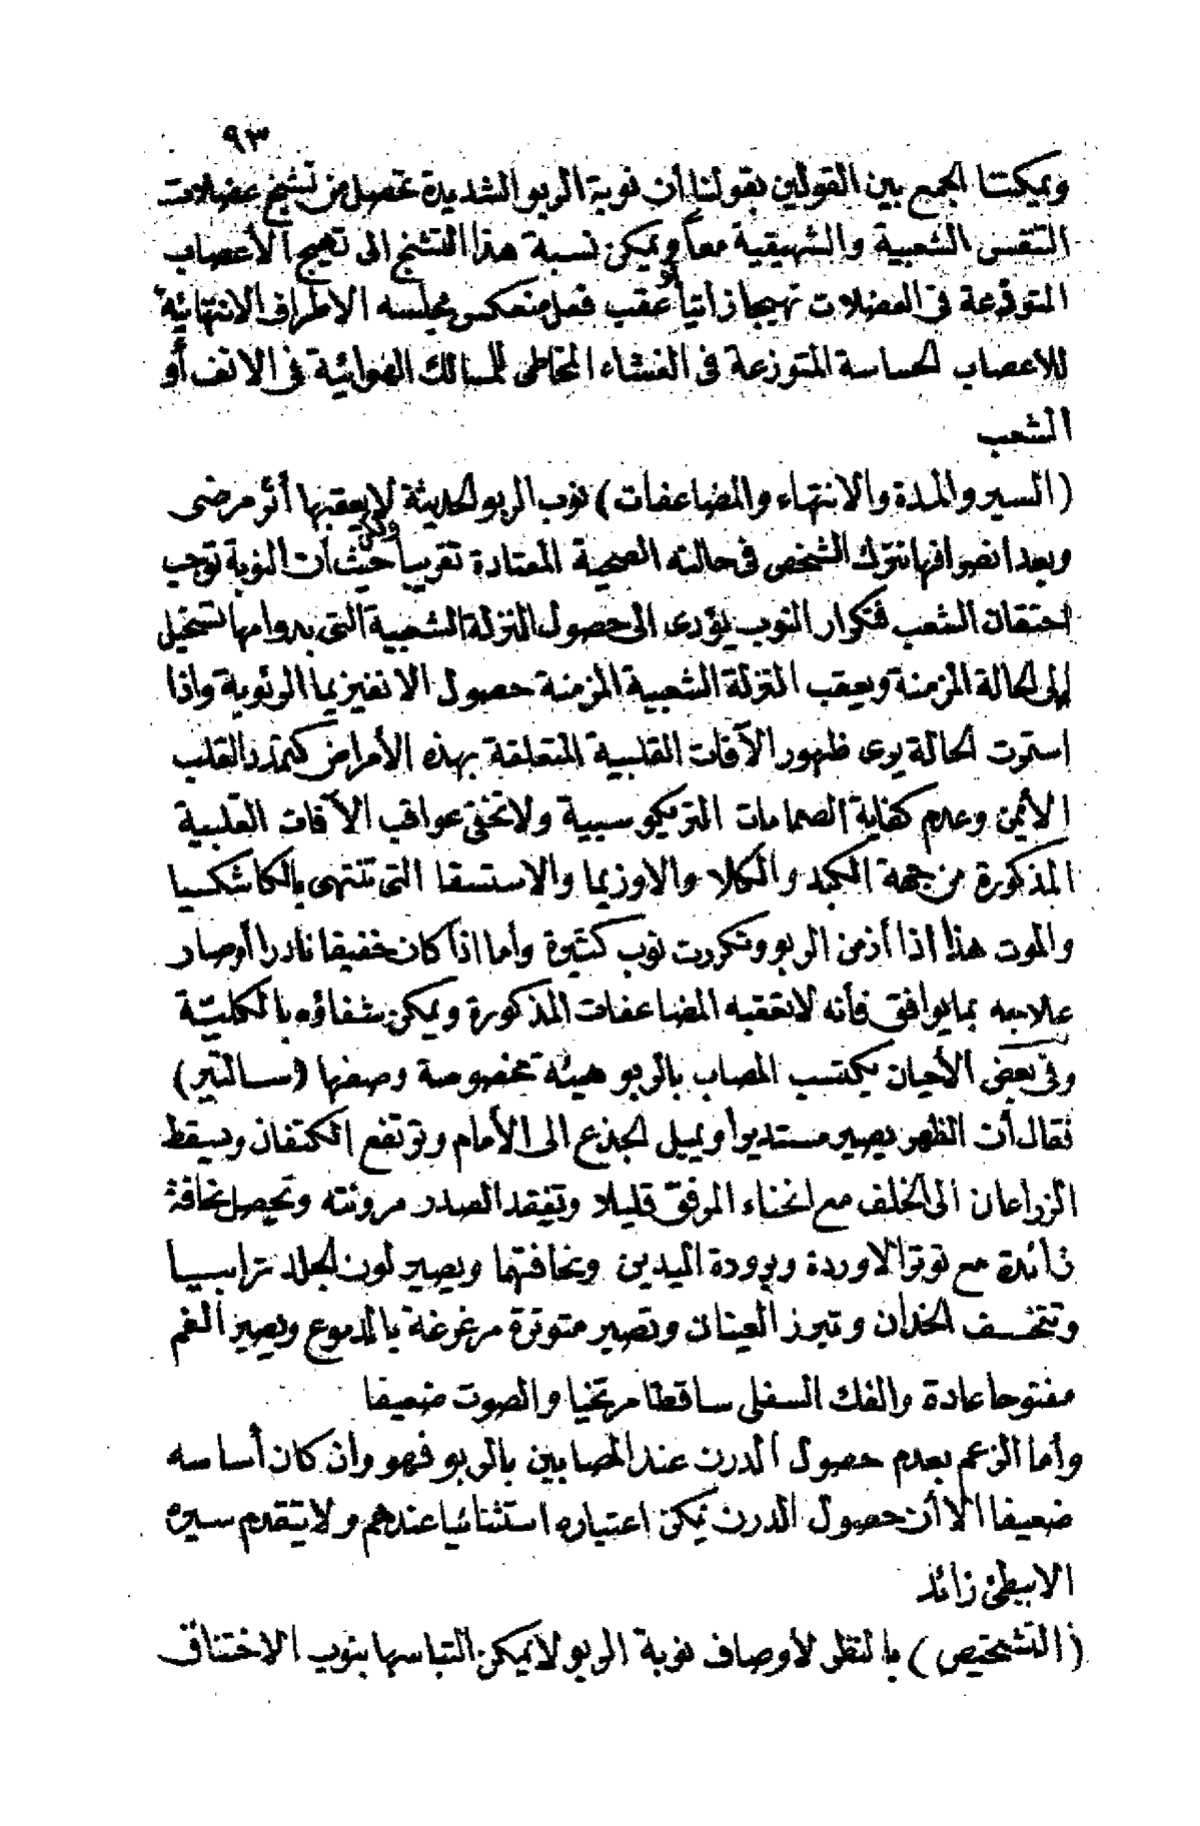 ٩٣
ويمكننا الجمع بين القولين بقولنا أن نوبة الربو الشديدة تحصل من تشنج عضلات
التنفس الشعبية والشهيقية معاً ويمكن نسبة هذا التشنج الى تهيج الأعصاب
المتوزعة فى العضلات تهيجا ذاتياً أو عقب فعل منعكس مجلسه الاطراف الانتهائية
للاعصاب الحساسة المتوزعة فى الغشاء المخاطى للمسالك الهوائية فى الانف أو
الشعب
(السير والمدة والانتهاء والمضاعفات) نوب الربو الحديثة لا يعقبها أثر مرضى
وبعد انصرافها تترك الشخص فى حالته الصحية المعتادة تقريباً ولكن حيث أن النوبة توجب
احتقان الشعب فتكرار النوب يؤدى الى حصول النزلة الشعبية التى بدوامها تستحيل
إلى الحالة المزمنة ويعقب النزلة الشعبية المزمنة حصول الانفيزيما الرئوية واذا
استمرت الحالة يرى ظهور الآفات القلبية المتعلقة بهذه الأمراض كتمدد القلب
الأيمن وعدم كفاية الصمامات التريكوسبيدية ولا تخفى عواقب الآفات القلبية
المذكورة من جهة الكبد والكلا والاوزيما والاستسقا التى تنتهى بالكاشكسيا
والموت هذا اذا أزمن الربو وتكررت نوب كثيرة وأما اذا كان خفيفا نادرا أو صار
علاجه بما يوافق فأنه لا تعقبه المضاعفات المذكورة ويمكن شفاؤه بالكلية
وفى بعض الأحيان يكتسب المصاب بالربو هيئة مخصوصة وصفها (سالتير)
فقال أن الظهر يصير مستديرا ويميل الجذع الى الأمام وترتفع الكتفان ويسقط
الزراعان الى الخلف مع انحناء المرفق قليلا ويفقد الصدر مرونته وتحصل نحافة
زائدة مع توتر الاوردة وبرودة اليدين ونحافتهما ويصير لون الجلد ترابيا
وتنخسف الخدان وتبرز العينان وتصير متوترة مرغرغة بالدموع ويصير الفم
مفتوحا عادة والفك السفلى ساقطا مرتخيا والصوت ضعيفا
وأما الزعم بعدم حصول الدرن عند المصابين بالربو فهو وان كان أساسه
ضعيفا الا أن حصول الدرن يمكن اعتباره استثنائيا عندهم ولا يتقدم سيره
الا ببطئ زائد
(التشخيص) بالنظر لأوصاف نوبة الربو لا يمكن التباسها بنوب الاختناق